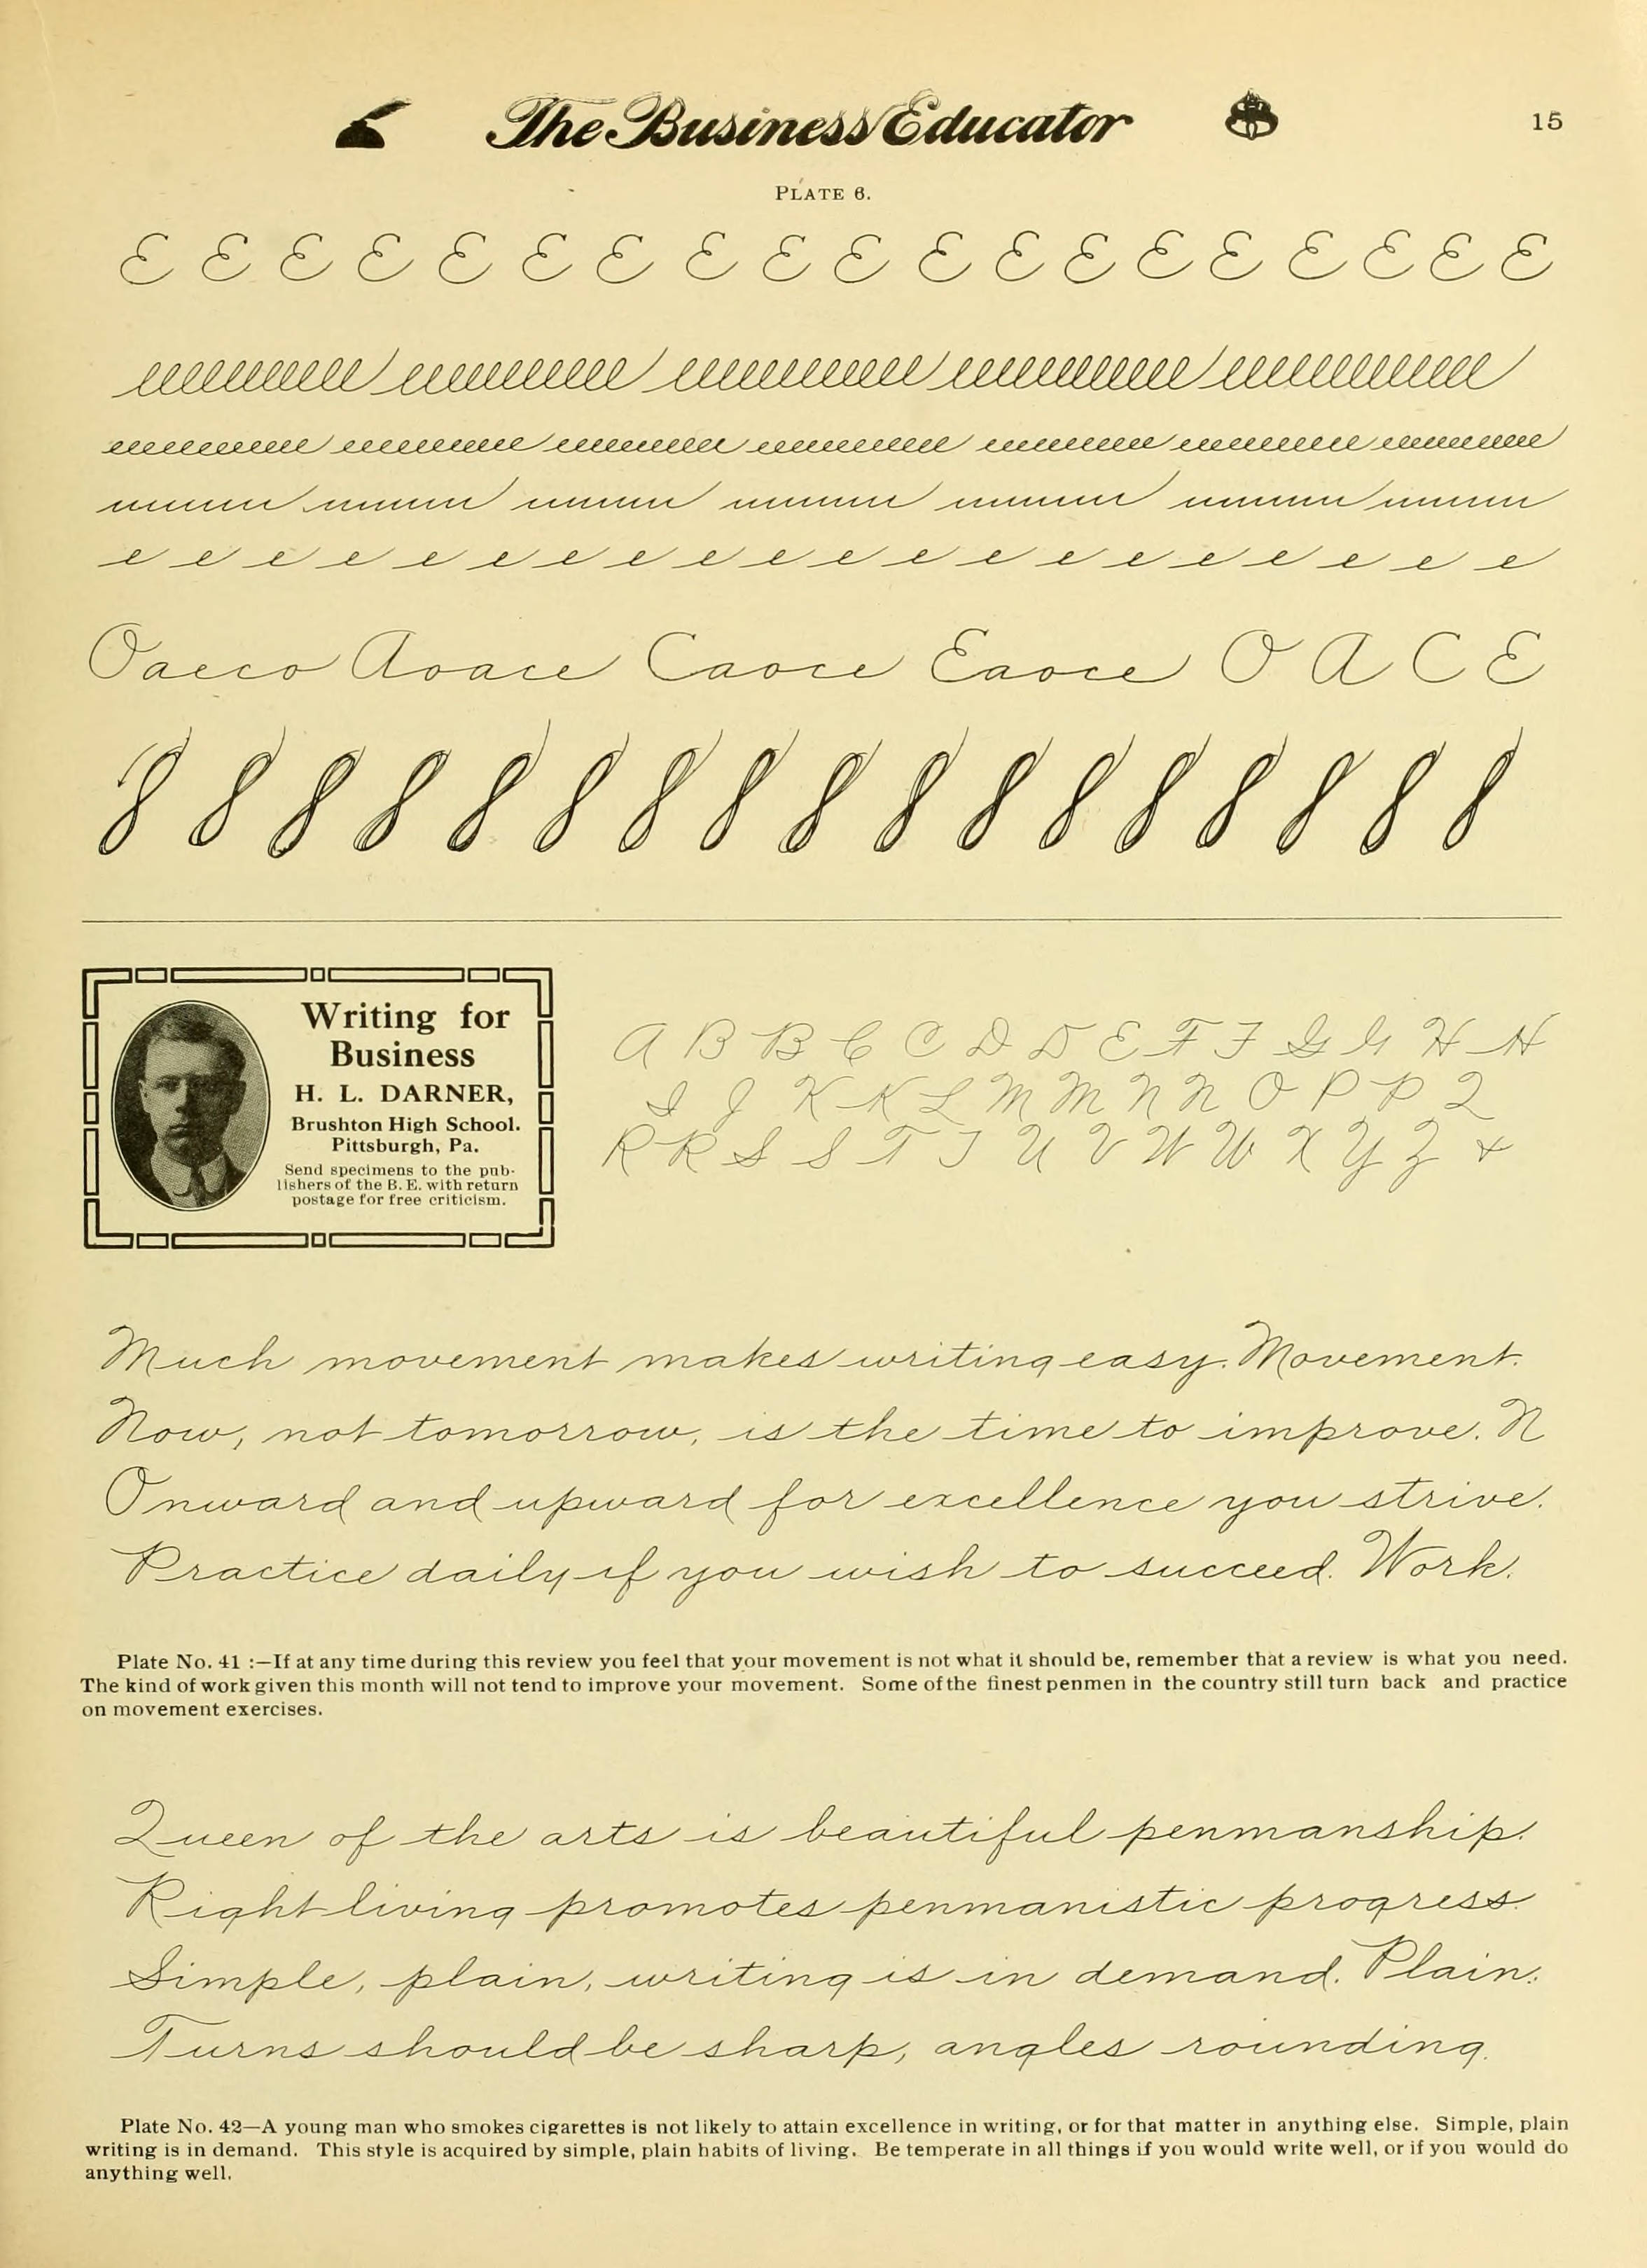 The Business Educator
15
PLATE 6.
E E E E E E E E E E E E E E E E E E E
eeeeeeeeeee eeeeeeeeeee eeeeeeeeeee eeeeeeeeeee eeeeeeeeeeee
e e e e e e e e e e e e e e e e e e e e
Oaeco Aoace Caoce Eaoce O A C E
Writing for
Business
H. L. DARNER,
Brushton High School.
Pittsburgh, Pa.
Send specimens to the pub-
lishers of the B. E. with return
postage for free criticism.
A B B C C D D E F F G G H H
I J K K L M M N N O P P Q
R R S S T T U V W W X Y Z &
Much movement makes writing easy. Movement.
Now, not tomorrow, is the time to improve. N
Onward and upward for excellence you strive.
Practice daily if you wish to succeed. Work.
Plate No. 41 :—If at any time during this review you feel that your movement is not what it should be, remember that a review is what you need.
The kind of work given this month will not tend to improve your movement. Some of the finest penmen in the country still turn back and practice
on movement exercises.
Queen of the arts is beautiful penmanship.
Right living promotes penmanistic progress.
Simple, plain, writing is in demand. Plain.
Turns should be sharp, angles rounding.
Plate No. 42—A young man who smokes cigarettes is not likely to attain excellence in writing, or for that matter in anything else. Simple, plain
writing is in demand. This style is acquired by simple, plain habits of living. Be temperate in all things if you would write well, or if you would do
anything well.